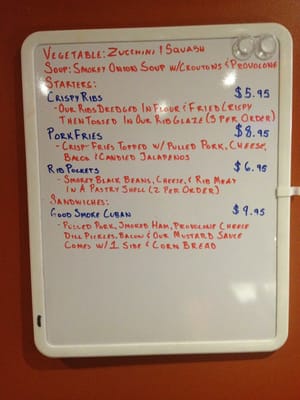 VEGETABLE: ZUCCHINI & SQUASH
SOUP: SMOKEY ONION SOUP W/CROUTONS & PROVOLONE
STARTERS:
CRISPY RIBS $5.95
- OUR RIBS DREDGED IN FLOUR & FRIED CRISPY
THEN TOSSED IN OUR RIB GLAZE (3 PER ORDER)
PORK FRIES $8.95
- CRISP FRIES TOPPED W/ PULLED PORK, CHEESE,
BACON & CANDIED JALAPENOS
RIB POCKETS $6.95
- SMOKEY BLACK BEANS, CHEESE, & RIB MEAT
IN A PASTRY SHELL (2 PER ORDER)
SANDWICHES:
GOOD SMOKE CUBAN $9.95
- PULLED PORK, SMOKED HAM, PROVOLONE CHEESE
DILL PICKLES, BACON & OUR MUSTARD SAUCE
COMES W/ 1 SIDE & CORN BREAD